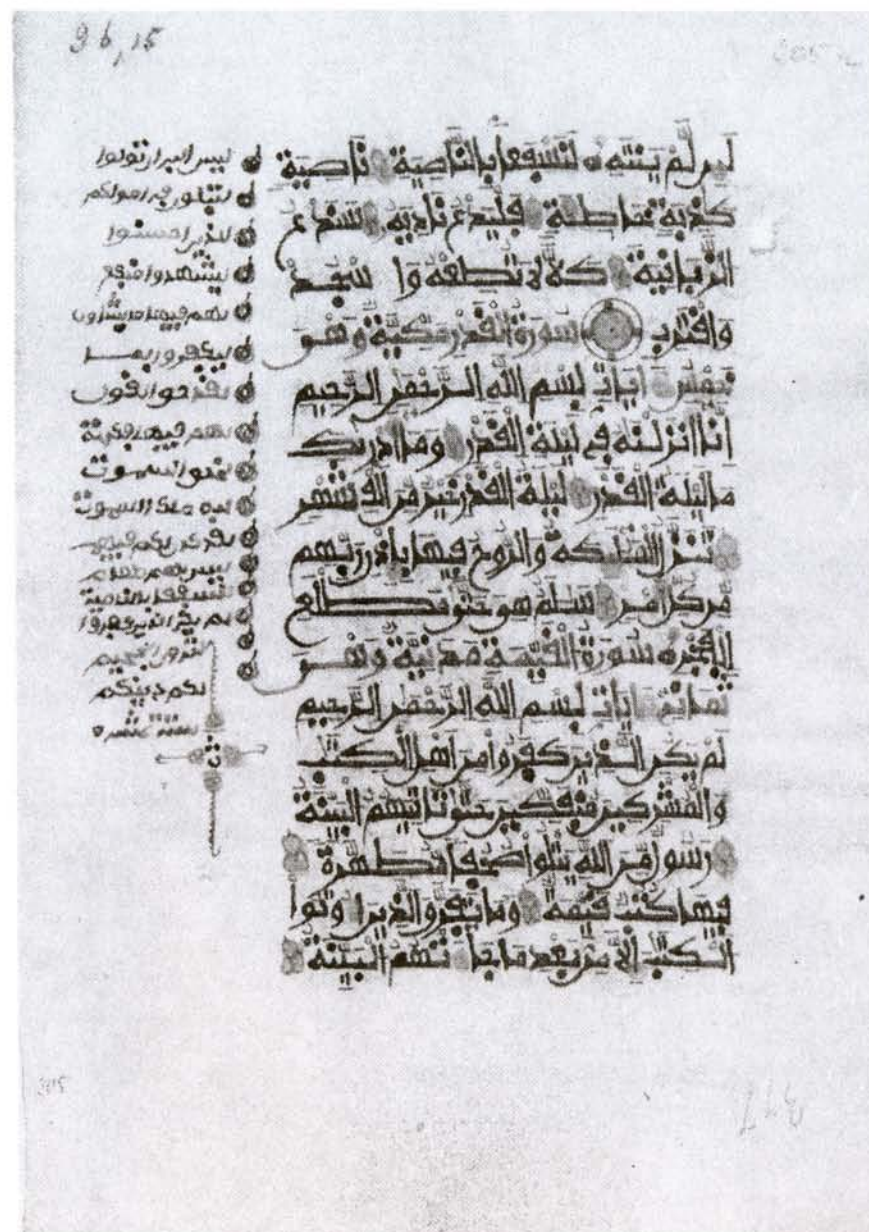 96,15
305
لين لم ينته لنسفعا بالناصية ناصية
كذبة خاطئة فليدع ناديه سندع
الزبانية كلا لا تطعه وا سجد
واقترب سورة القدر مكية وهي
خمس ايات بسم الله الرحمن الرحيم
انا انزلنه في ليلة القدر وما ادريك
ما ليلة القدر ليلة القدر خير من الف شهر
تنزل المليكة والروح فيها باذن ربهم
من كل امر سلم هي حتى مطلع
الفجر سورة القيمة مدنية وهي
ثماني ايات بسم الله الرحمن الرحيم
لم يكن الذين كفروا من اهل الكتب
والمشركين منفكين حتى تاتيهم البينة
رسول من الله يتلوا صحفا مطهرة
فيها كتب قيمة وما تفرق الذين ا وتوا
الكتب الا من بعد ما جا تهم البينة
ليس البر ان تولوا
لتبلون في امولكم
للذين احسنوا
ليشهدوا منفع
لهم فيها ما يشاون
ليكفروا بما
لهم فيها فكهة
السموت
له ملك السموت
ليس لهم طعام
لنسفعا بالناصية
لم يكن الذين كفروا
لترون الجحيم
لكم دينكم
ستة عشر
305